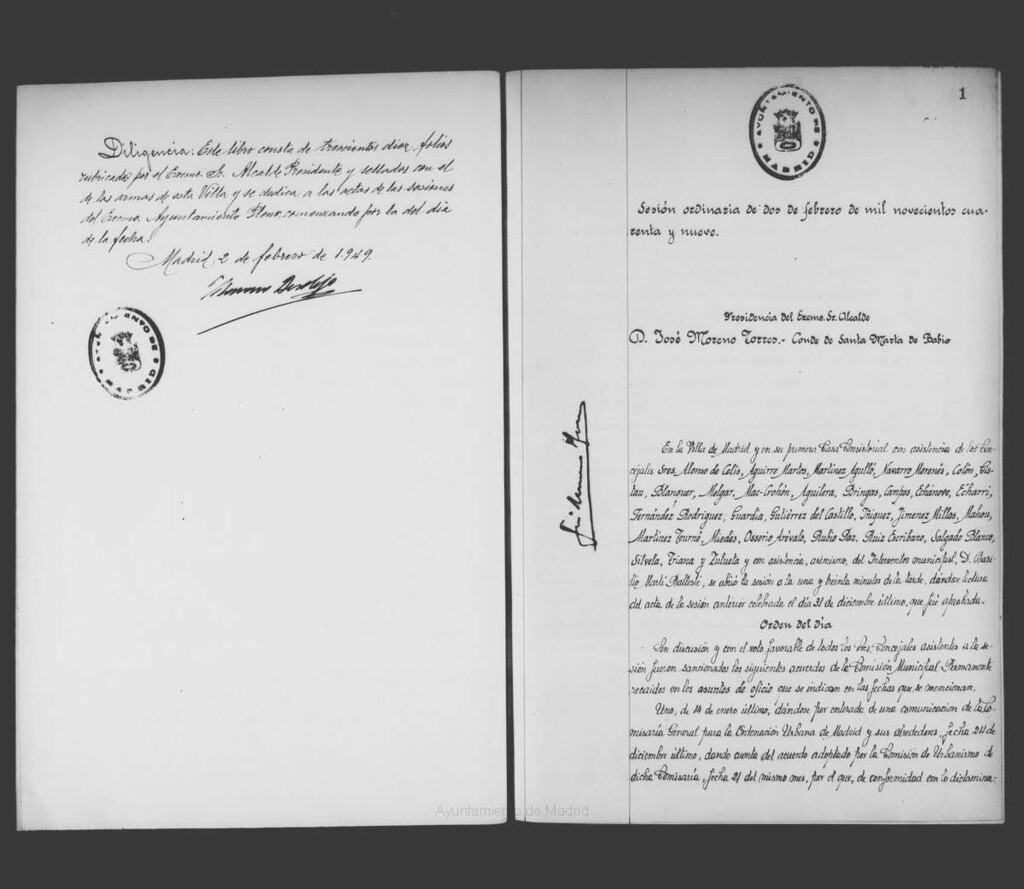 Diligencia: Este libro consta de trescientos diez folios
rubricados por el Excmo. Sr. Alcalde Presidente y sellados con el
de las armas de esta Villa y se dedica a las actas de las sesiones
del Excmo. Ayuntamiento Pleno, comenzando por la del día
de la fecha.
Madrid, 2 de febrero de 1.949.
AYUNTAMIENTO DE MADRID
1
AYUNTAMIENTO DE MADRID
Sesión ordinaria de dos de febrero de mil novecientos cua-
renta y nueve.
Presidencia del Excmo. Sr. Alcalde
D. José Moreno Torres.- Conde de Santa Marta de Babio
En la Villa de Madrid y en su primera Casa Consistorial con asistencia de los Con-
cejales Sres. Alonso de Celis, Aguirre Martos, Martínez Agulló, Navarro Morenés, Colón, Gis-
tau, Blanquer, Melgar, Mac-Crohón, Aguilera, Bringas, Campos, Echánove, Echarri,
Fernández Rodríguez, Guardia, Gutiérrez del Castillo, Iñiguez, Jimenez Millas, Mahou,
Martinez Tourné, Miedes, Ossorio Arévalo, Rubio Paz, Ruiz Escribano, Salgado Blanco,
Silvela, Triana y Zulueta y con asistencia, asimismo, del Interventor municipal, D. Basi-
lio Martí Ballesté, se abrió la sesión a la una y treinta minutos de la tarde, dándose lectura
del acta de la sesión anterior celebrada el día 31 de diciembre último, que fué aprobada.
Orden del día
Sin discusión y con el voto favorable de todos los Sres. Concejales asistentes a la se-
sión fueron sancionados los siguientes acuerdos de la Comisión Municipal Permanente
recaídos en los asuntos de oficio que se indican en las fechas que se mencionan.
Uno, de 14 de enero último, dándose por enterado de una comunicación de la Co-
misaría General para la Ordenación Urbana de Madrid y sus alrededores, fecha 24 de
diciembre último, dando cuenta del acuerdo adoptado por la Comisión de Urbanismo de
dicha Comisaría, fecha 21 del mismo mes, por el que, de conformidad con lo dictamina-
Ayuntamiento de Madrid